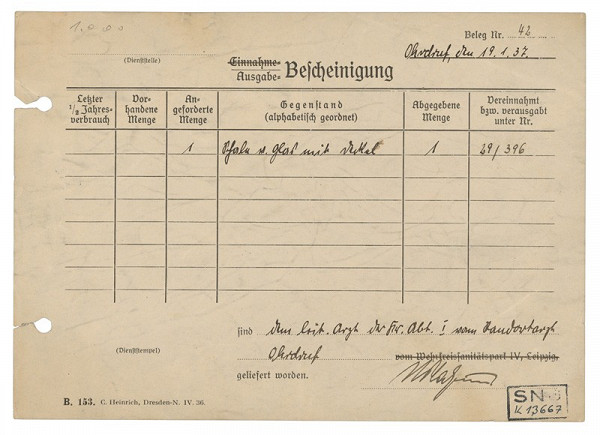 Beleg Nr. 42
Ohrdruf, den 19.1.37.
(Dienststelle)
Einnahme-
Ausgabe- Bescheinigung
Letzter ½ Jahres-verbrauch | Vor-handene Menge | An-geforderte Menge | Gegenstand (alphabetisch geordnet) | Abgegebene Menge | Vereinnahmt bzw. verausgabt unter Nr.
1 | Schale v. Glas mit Deckel | 1 | 29/396
sind dem leit. Arzt der Kr. Abt. I vom Standortarzt
Ohrdruf vom Wehrkreissanitätspark IV, Leipzig,
(Dienststempel)
geliefert worden.
B. 153. C. Heinrich, Dresden-N. IV. 36.
SN-
K 13667